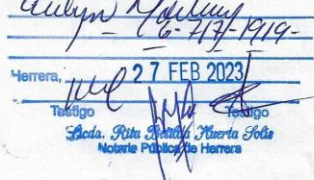 Evelyn
6-717-1919-
Herrera, 27 FEB 2023
Testigo Testigo
Licda. Rita Huerta Solís
Notaria Pública de Herrera